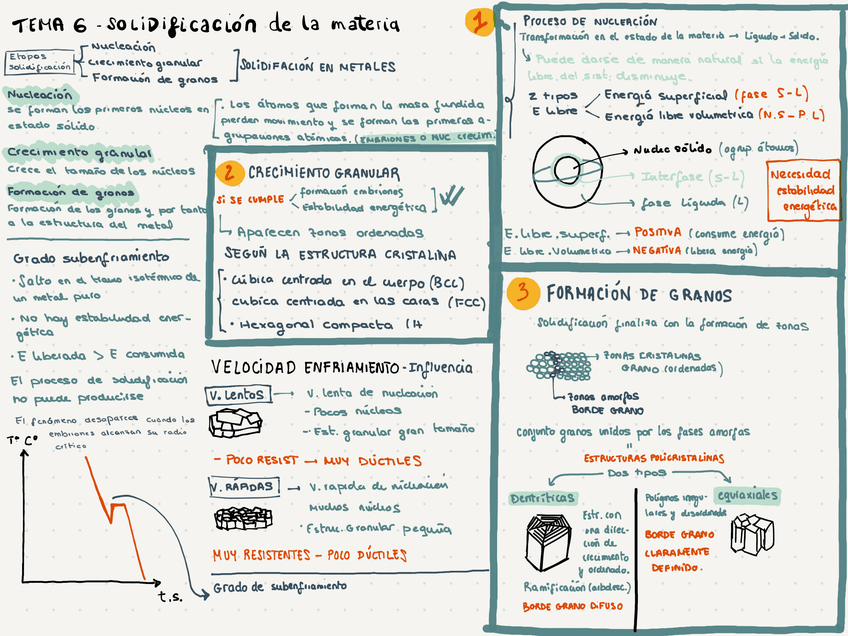 TEMA 6 - SOLIDIFICACIÓN de la materia
Etapas
solidificación
Nucleación
Crecimiento granular
Formación de granos
SOLIDIFACIÓN EN METALES
Nucleación
se forman los primeros núcleos en
estado sólido
· Los átomos que forman la masa fundida
pierden movimiento y se forman las primeras a-
grupaciones atómicas. (EMBRIONES O NUC. CRECIM.
Crecimiento granular
Crece el tamaño de los núcleos
Formación de granos
Formación de los granos y por tanto
a la estructura del metal
Grado subenfriamiento
· Salto en el tramo isotérmico de
un metal puro
· No hay estabilidad ener-
gética
· E liberada > E consumida
El proceso de solidificación
no puede producirse
El fenómeno, desaparece cuando los
embriones alcanzan su radio
crítico
Tº Cº
t.s.
Grado de subenfriamiento
1
PROCESO DE NUCLEACIÓN
Transformación en el estado de la materia → Líquido → Sólido.
Puede darse de manera natural si la energía
libre del sist. disminuye.
2 tipos
E libre
Energía superficial (fase S-L)
Energía libre volumetrica (N.S-P.L)
Nucleo sólido (agrup. átomos)
Interfase (S-L)
fase líquida (L)
Necesidad
estabilidad
energética
E. libre. superf. → POSITIVA (consume energía)
E. libre. Volumetrica → NEGATIVA (libera energía)
2
CRECIMIENTO GRANULAR
SI SE CUMPLE
formación embriones
Estabilidad energética
Aparecen zonas ordenadas
SEGÚN LA ESTRUCTURA CRISTALINA
· Cúbica centrada en el cuerpo (BCC)
cubica centrada en las caras (FCC)
· Hexagonal compacta (H
VELOCIDAD ENFRIAMIENTO - Influencia
V. LENTAS
V. lenta de nucleación
- Pocos núcleos
- Est. granular gran tamaño
- POCO RESIST → MUY DÚCTILES
V. RÁPIDAS
V. rapida de nucleación
Muchos núcleos
· Estruc. Granular pequeña
MUY RESISTENTES - POCO DÚCTILES
3
FORMACIÓN DE GRANOS
Solidificación finaliza con la formación de zonas
ZONAS CRISTALINAS
GRANO (ordenadas)
Zonas amorfas
BORDE GRANO
Conjunto granos unidos por las fases amorfas
ESTRUCTURAS POLICRISTALINAS
DOS TIPOS
Dentríticas
Estr. con
una direc-
ción de
crecimiento
y ordenado.
Ramificación (arbdesc.)
BORDE GRANO DIFUSO
equiaxiales
Polígnos irregu-
lares y desordenado
BORDE GRANO
CLARAMENTE
DEFINIDO.